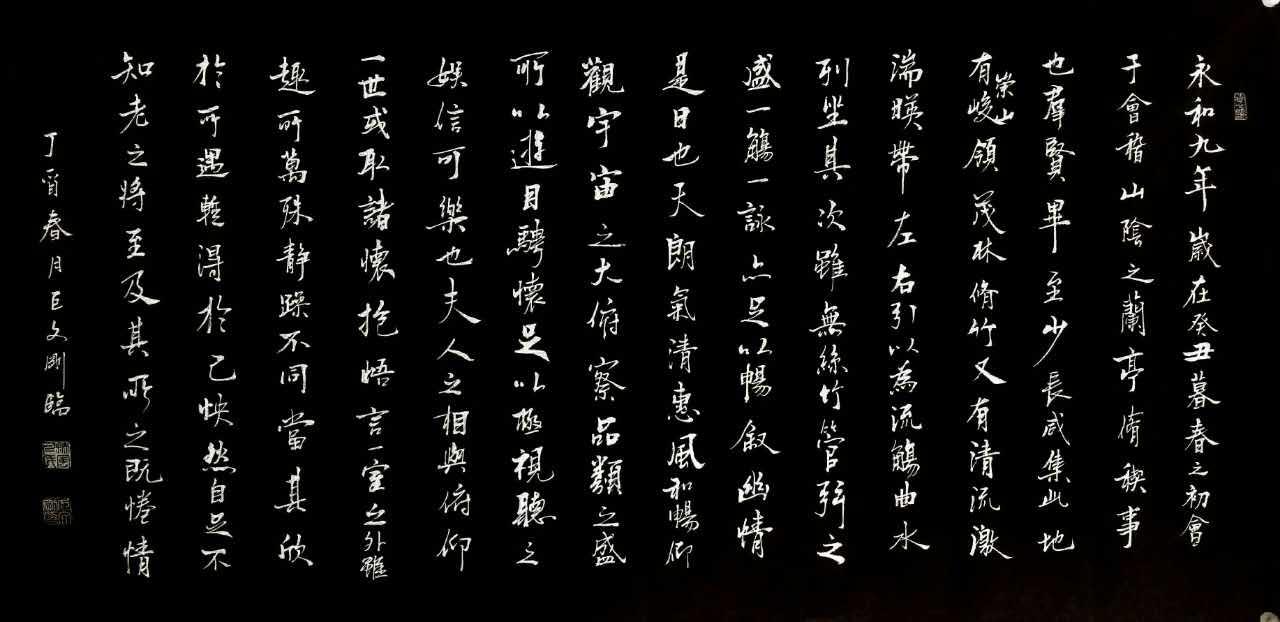 永和九年歲在癸丑暮春之初會
于會稽山陰之蘭亭脩稧事
也羣賢畢至少長咸集此地
有崇山峻領茂林脩竹又有清流激
湍暎帶左右引以為流觴曲水
列坐其次雖無絲竹管弦之
盛一觴一詠亦足以暢敘幽情
是日也天朗氣清惠風和暢仰
觀宇宙之大俯察品類之盛
所以遊目騁懷足以極視聽之
娛信可樂也夫人之相與俯仰
一世或取諸懷抱悟言一室之外雖
趣所萬殊静躁不同當其欣
於所遇輒得於己怏然自足不
知老之將至及其所之既惓情
丁酉春月巨文剛臨